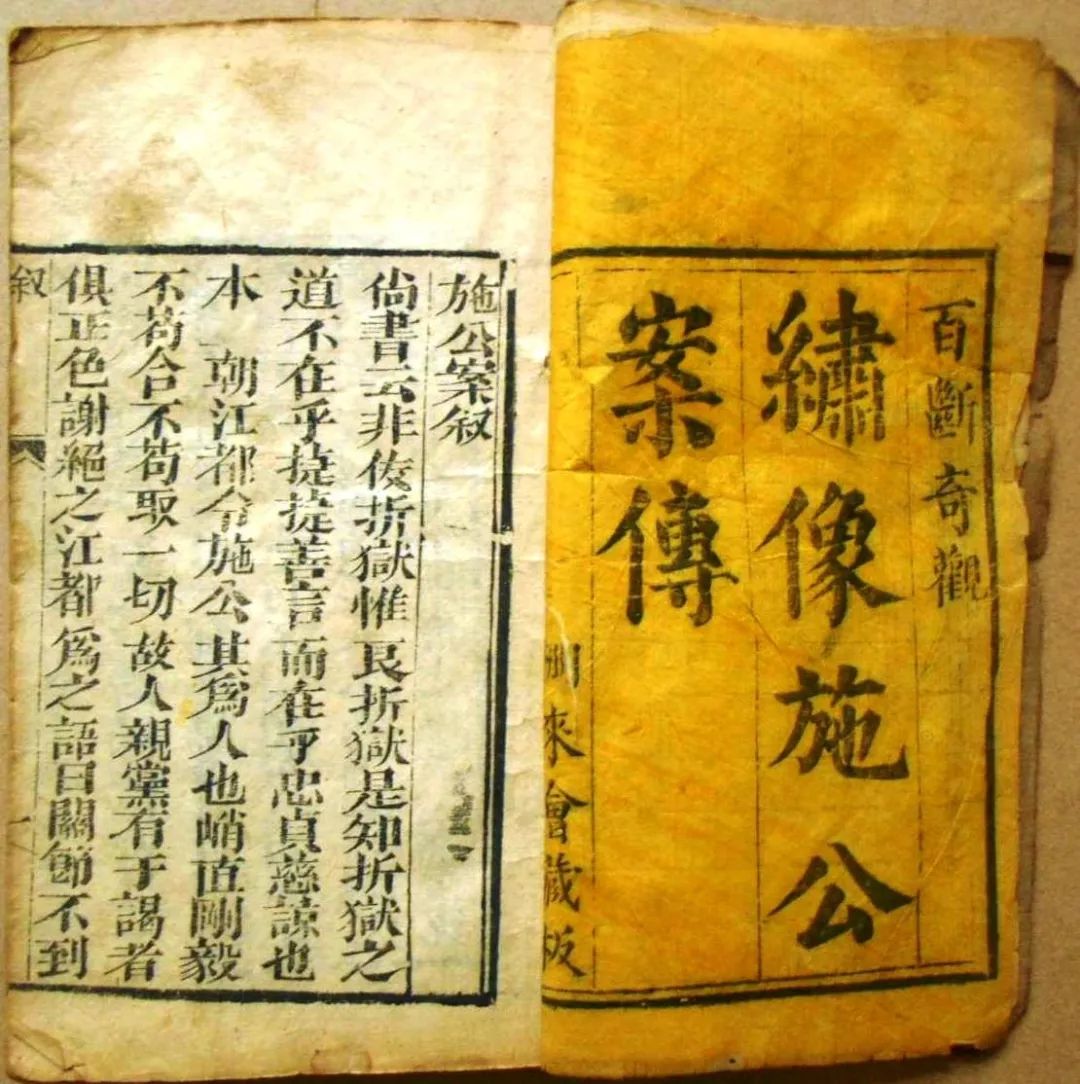 百斷奇觀
繡像施公
案傳
來會藏板
施公案叙
尙書云非佞折獄惟良折獄是知折獄之
道不在乎捷捷善言而在乎忠貞慈諒也
本　朝江都令施公其爲人也峭直剛毅
不苟合不苟取一切故人親黨有干謁者
俱正色謝絕之江都爲之語曰關節不到
叙
一